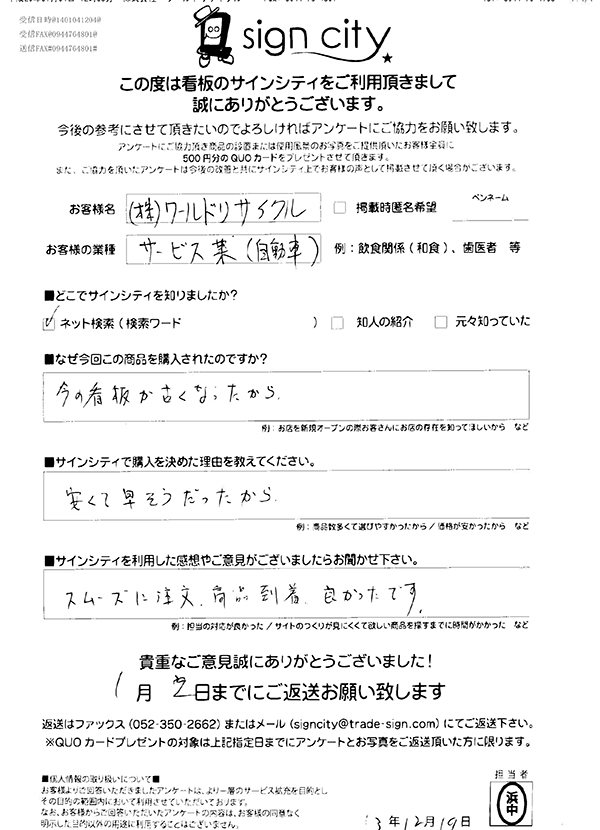 受信日時@1401041204#
受信FAX@0944764801#
送信FAX#0944764801#
sign city
この度は看板のサインシティをご利用頂きまして
誠にありがとうございます。
今後の参考にさせて頂きたいのでよろしければアンケートにご協力をお願い致します。
アンケートにご協力頂き商品の設置または使用風景のお写真をご提供頂いたお客様全員に
500円分のQUOカードをプレゼントさせて頂きます。
また、ご協力を頂いたアンケートは今後の改善と共にサインシティ上でお客様の声として掲載させて頂く場合がございます。
お客様名 (株)ワールドリサイクル 掲載時匿名希望 ペンネーム
お客様の業種 サービス業(自動車) 例:飲食関係(和食)、歯医者 等
■どこでサインシティを知りましたか?
ネット検索(検索ワード ) 知人の紹介 元々知っていた
■なぜ今回この商品を購入されたのですか?
今の看板が古くなったから.
例:お店を新規オープンの際お客さんにお店の存在を知ってほしいから など
■サインシティで購入を決めた理由を教えてください。
安くて早そうだったから.
例:商品数多くて選びやすかったから/価格が安かったから など
■サインシティを利用した感想やご意見がございましたらお聞かせ下さい。
スムーズに注文、商品到着、良かったです。
例:担当の対応が良かった/サイトのつくりが見にくくて欲しい商品を探すまでに時間がかかった など
貴重なご意見誠にありがとうございました!
1月 日までにご返送お願い致します
返送はファックス(052-350-2662)またはメール(signcity@trade-sign.com)にてご返送下さい。
※QUOカードプレゼントの対象は上記指定日までにアンケートとお写真をご返送頂いた方に限ります。
■個人情報の取り扱いについて■
お客様よりご回答いただきましたアンケートは、より一層のサービス拡充を目的とし
その目的の範囲内において利用させていただいております。
なお、お客様からご回答いただいたアンケートの内容は、お客様の同意なく
明示した目的以外の用途に利用することはございません。
担当者
浜中
13年12月19日